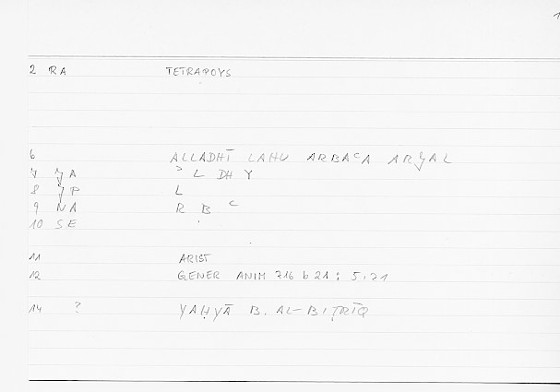 2 RA TETRAPOYS
6 ALLADHĪ LAHU ARBAᶜA ARǦAL
7 ǦA ᵓ L DH Y
8 ǦP L
9 NA R B ᶜ
10 SE
11 ARIST
12 GENER ANIM 716 b 21 ; 5.21
14 ? YAḤYĀ B. AL-BIṬRĪQ